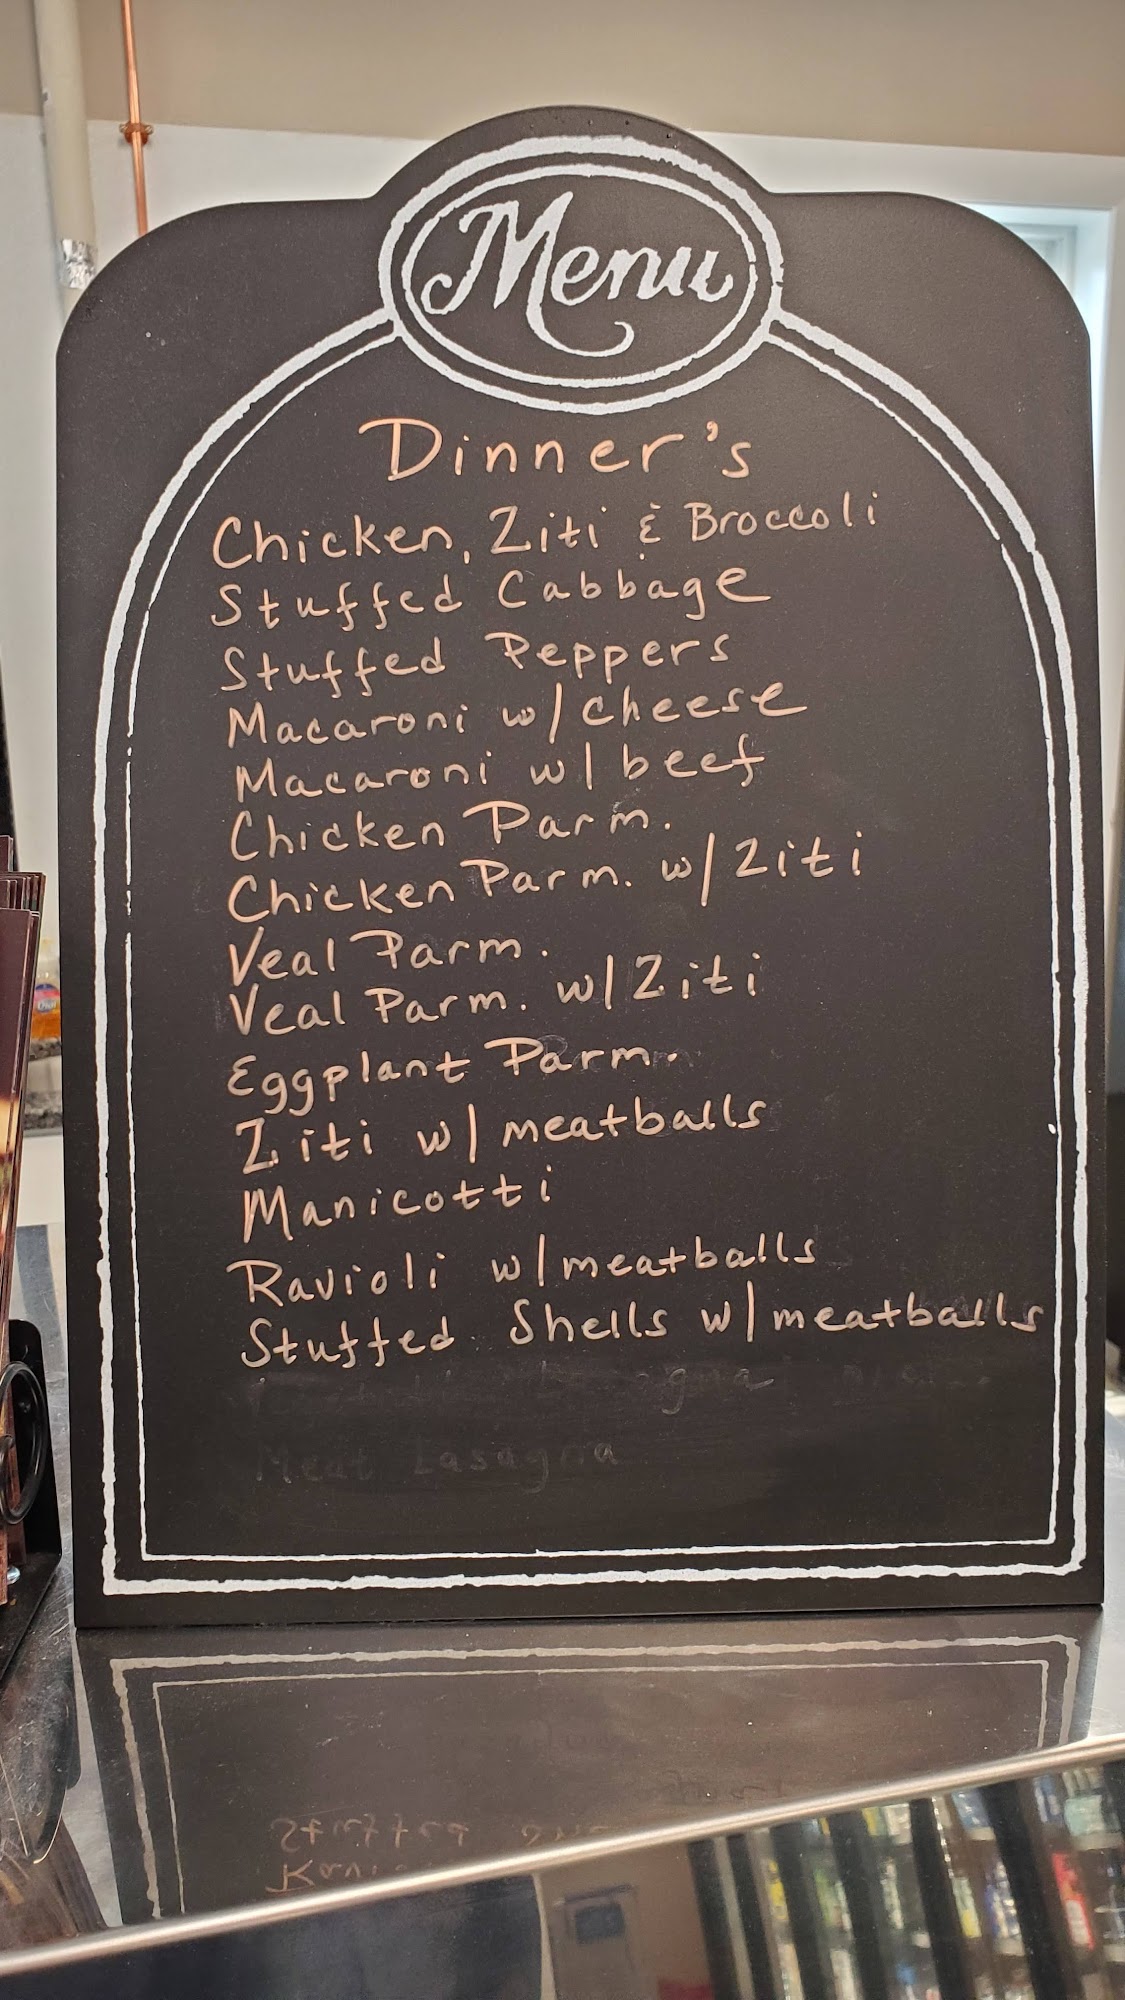 Menu
Dinner's
Chicken, Ziti & Broccoli
Stuffed Cabbage
Stuffed Peppers
Macaroni w/cheese
Macaroni w/beef
Chicken Parm.
Chicken Parm. w/Ziti
Veal Parm.
Veal Parm. w/Ziti
Eggplant Parm.
Ziti w/meatballs
Manicotti
Ravioli w/meatballs
Stuffed Shells w/meatballs
Meat Lasagna